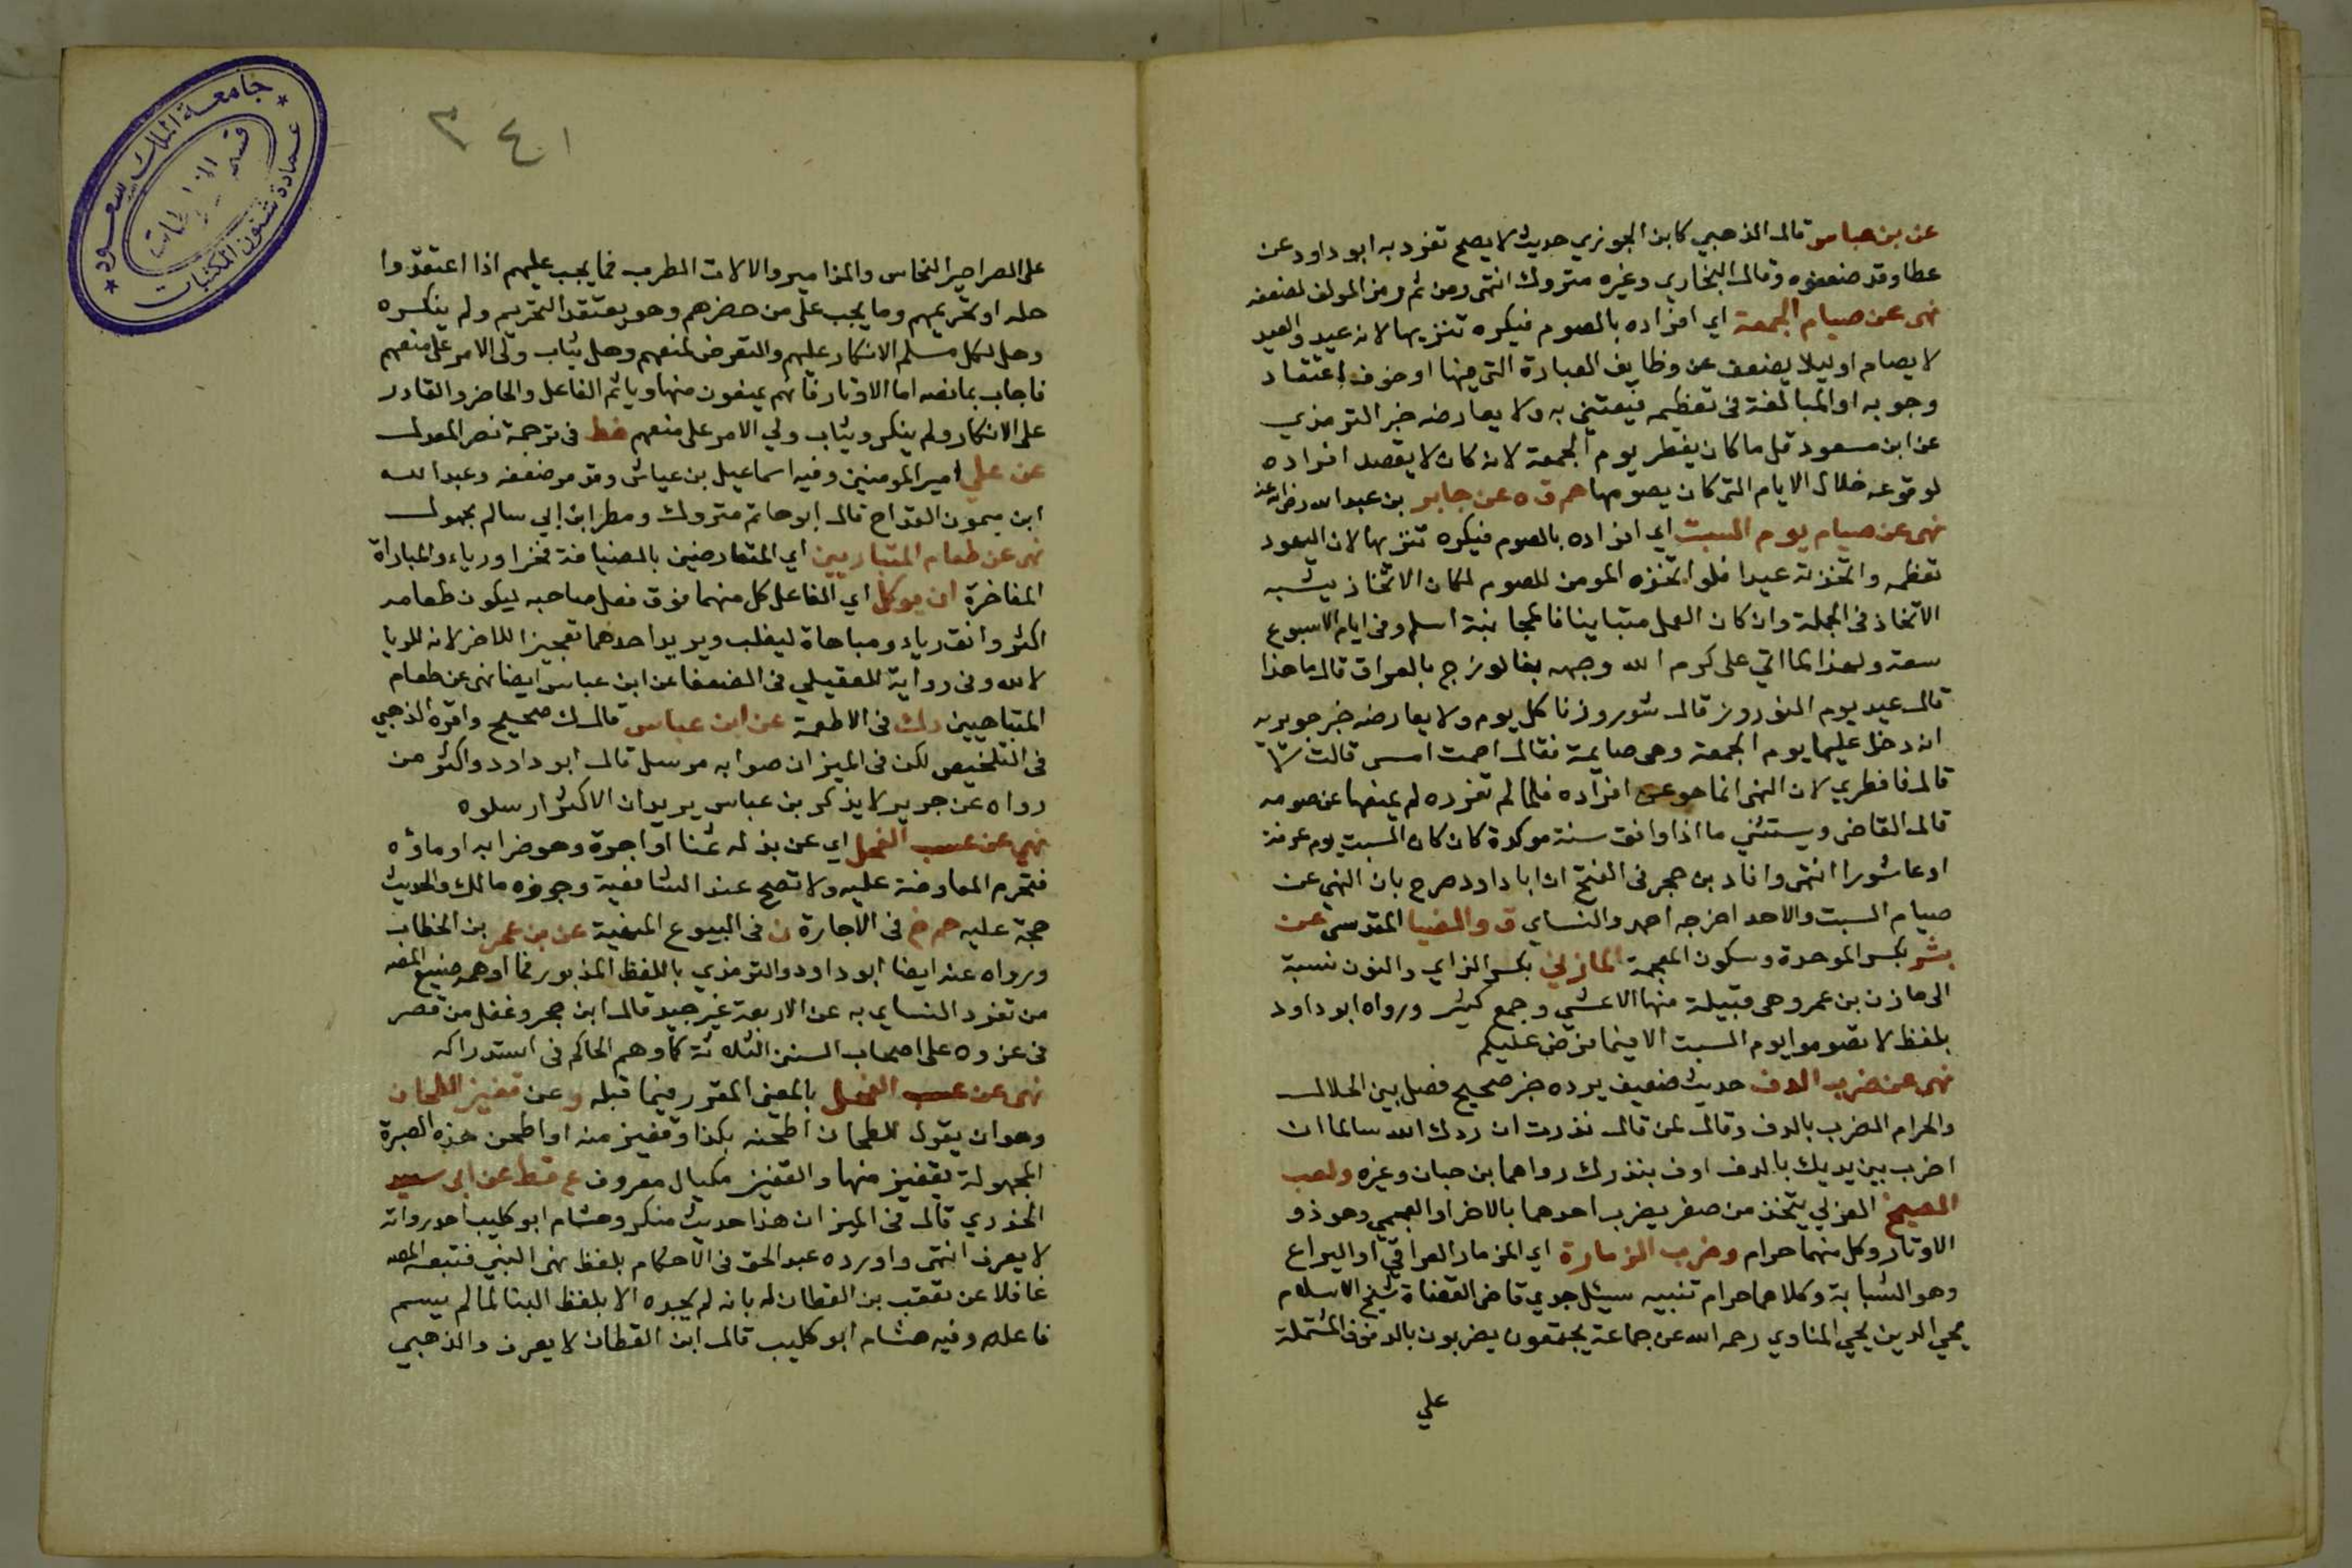 عن بن عباس قال الذهبي كابن الجوزي حديث لا يصح تفرد به ابو داود عن
عطا وقد ضعفوه وقال البخاري وغيره متروك انتهى ومن ثم رمز المولف لضعفه
نهى عن صيام الجمعة اي افراده بالصوم فيكره تنزيها لانه عيد والعيد
لا يصام او ليلا يضعف عن وظايف العبادة التي فيها او خوف اعتقاد
وجوبه او المبالغة في تعظيمه فيعتني به ولا يعارضه خبر الترمذي
عن ابن مسعود قل ما كان يفطر يوم الجمعة لانه كان لا يقصد افراده
لوقوعه خلال الايام التي كان يصومها حم ق ه عن جابر بن عبد الله رضي الله عنه
نهى عن صيام يوم السبت اي افراده بالصوم فيكره تنزيها لان اليهود
تعظمه واتخذته عيدا فلو اتخذه المومن للصوم لكان الاتخاذ يشبه
الاتخاذ في الجملة وان كان العمل متباينا فالمجانبة اسلم وفي ايام الاسبوع
سعة ولهذا لما اتي علي كرم الله وجهه بفالوزج بالعراق قال ما هذا
قال عيد يوم النوروز قال نوروزنا كل يوم ولا يعارضه خبر جويرية
انه دخل عليها يوم الجمعة وهي صايمة فقال اصمت امس قالت لا
قال فافطري لان النهي انما هو عن افراده فلما لم تفرده لم يمنعها عن صومه
قال القاضي ويستثني ما اذا وافق سنة موكدة كان كان السبت يوم عرفة
او عاشورا انتهى وافاد بن حجر في الفتح ان ابا داود صرح بان النهي عن
صيام السبت والاحد اخرجه احمد والنساي ق والضيا المقدسي عن
بشر بكسر الموحدة وسكون المعجمة المازني بكسر الزاي والنون نسبة
الى مازن بن عمرو هي قبيلة منها الاعشي وجمع كثير ورواه ابو داود
بلفظ لا تصوموا يوم السبت الا فيما فرض عليكم
نهى عن ضرب الدف حديث ضعيف يرده خبر صحيح فصل بين الحلال
والحرام الضرب بالدف وقال لمن قال نذرت ان ردك الله سالما ان
اضرب بين يديك بالدف اوف بنذرك رواهما بن حبان وغيره ولعب
الصنج العربي يتخذ من صفر يضرب احدهما بالاخر او العجمي وهو ذو
الاوتار وكل منهما حرام وضرب الزمارة اي المزمار العراقي او اليراع
وهو الشبابة وكلاهما حرام تنبيه سيئل جدي قاضي القضاة شيخ الاسلام
يحي الدين يحيي المناوي رحمه الله عن جماعة يجتمعون يضربون بالدفوف المشتملة
علي
٣٤١
على الصراصير النحاس والمزامير والالات المطرب فما يجب عليهم اذا اعتقدوا
حله او تحريمهم وما يجب على من حضرهم وهو يعتقد التحريم ولم ينكره
وهل لكل مسلم الانكار عليهم والتعرض لمنعهم وهل يثاب ولي الامر على منعهم
فاجاب بما نصه اما الاوتار فانهم يمنعون منها وياثم الفاعل والحاضر والقادر
على الانكار ولم ينكر ويثاب ولي الامر على منعهم خط في ترجمة نصر المعدل
عن علي امير المومنين وفيه اسماعيل بن عياش وقد مر ضعفه وعبد الله
ابن ميمون القداح قال ابو حاتم متروك ومطر ابن ابي سالم مجهول
نهى عن طعام المتباريين اي المتعارضين بالضيافة فخرا ورياء والمباراة
المفاخرة ان يوكل اي الفاعل كل منهما فوق فعل صاحبه ليكون طعامه
اكثر وانق رياء ومباهاة ليغلب ويريد احدهما تعجيزا للاخر لانه للريا
لا لله وفي رواية للعقيلي في الضعفا عن ابن عباس ايضا نهى عن طعام
المتباهيين دك في الاطعمة عن ابن عباس قال ك صحيح واقره الذهبي
في التلخيص لكن في الميزان صوابه مرسل قال ابو داود واكثر من
رواه عن جرير لا يذكر بن عباس يريد ان الاكثر ارسلوه
نهي عن عسب الفحل اي عن بذله ثمنا او اجرة وهو ضرابه او ماؤه
فتحرم المعاوضة عليه ولا تصح عند الشافعية وجوزه مالك والحديث
حجة عليه حم خ في الاجارة ن في البيوع المنهية عن بن عمر بن الخطاب
ورواه عنه ايضا ابو داود والترمذي باللفظ المذبور فما اوهمه صنيع المصه
من تفرد النساي به عن الاربعة غير جيد قال ابن حجر وغفل من قصر
في عزوه على اصحاب السنن الثلاثة كما وهم الحاكم في استدراكه
نهى عن عسب الفحل بالمعنى المقرر فيما قبله وعن قفيز الطحان
وهو ان يقول للطحان اطحنه بكذا وقفيز منه او اطحن هذه الصبرة
المجهولة بقفيز منها والقفيز مكيال معروف ع قط عن ابي سعيد
الخدري قال في الميزان هذا حديث منكر وهشام ابو كليب احد رواته
لا يعرف انتهى واورده عبد الحق في الاحكام بلفظ نهى النبي فتبعه المصه
غافلا عن تعقب بن القطان له بانه لم يجده الا بلفظ البنا لما لم يسم
فاعله وفيه هشام ابو كليب قال ابن القطان لا يعرف والذهبي
جامعة الملك سعود
عمادة شئون المكتبات
قسم المخطوطات